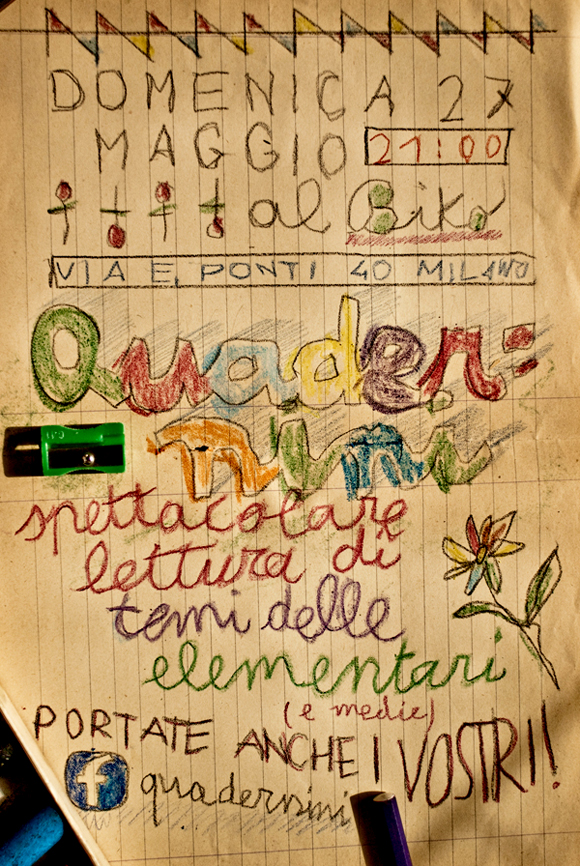 DOMENICA 27
MAGGIO 21:00
al Biko
VIA E. PONTI 40 MILANO
Quader-
nini
spettacolare
lettura di
temi delle
elementari
(e medie)
PORTATE ANCHE I VOSTRI!
f quadernini